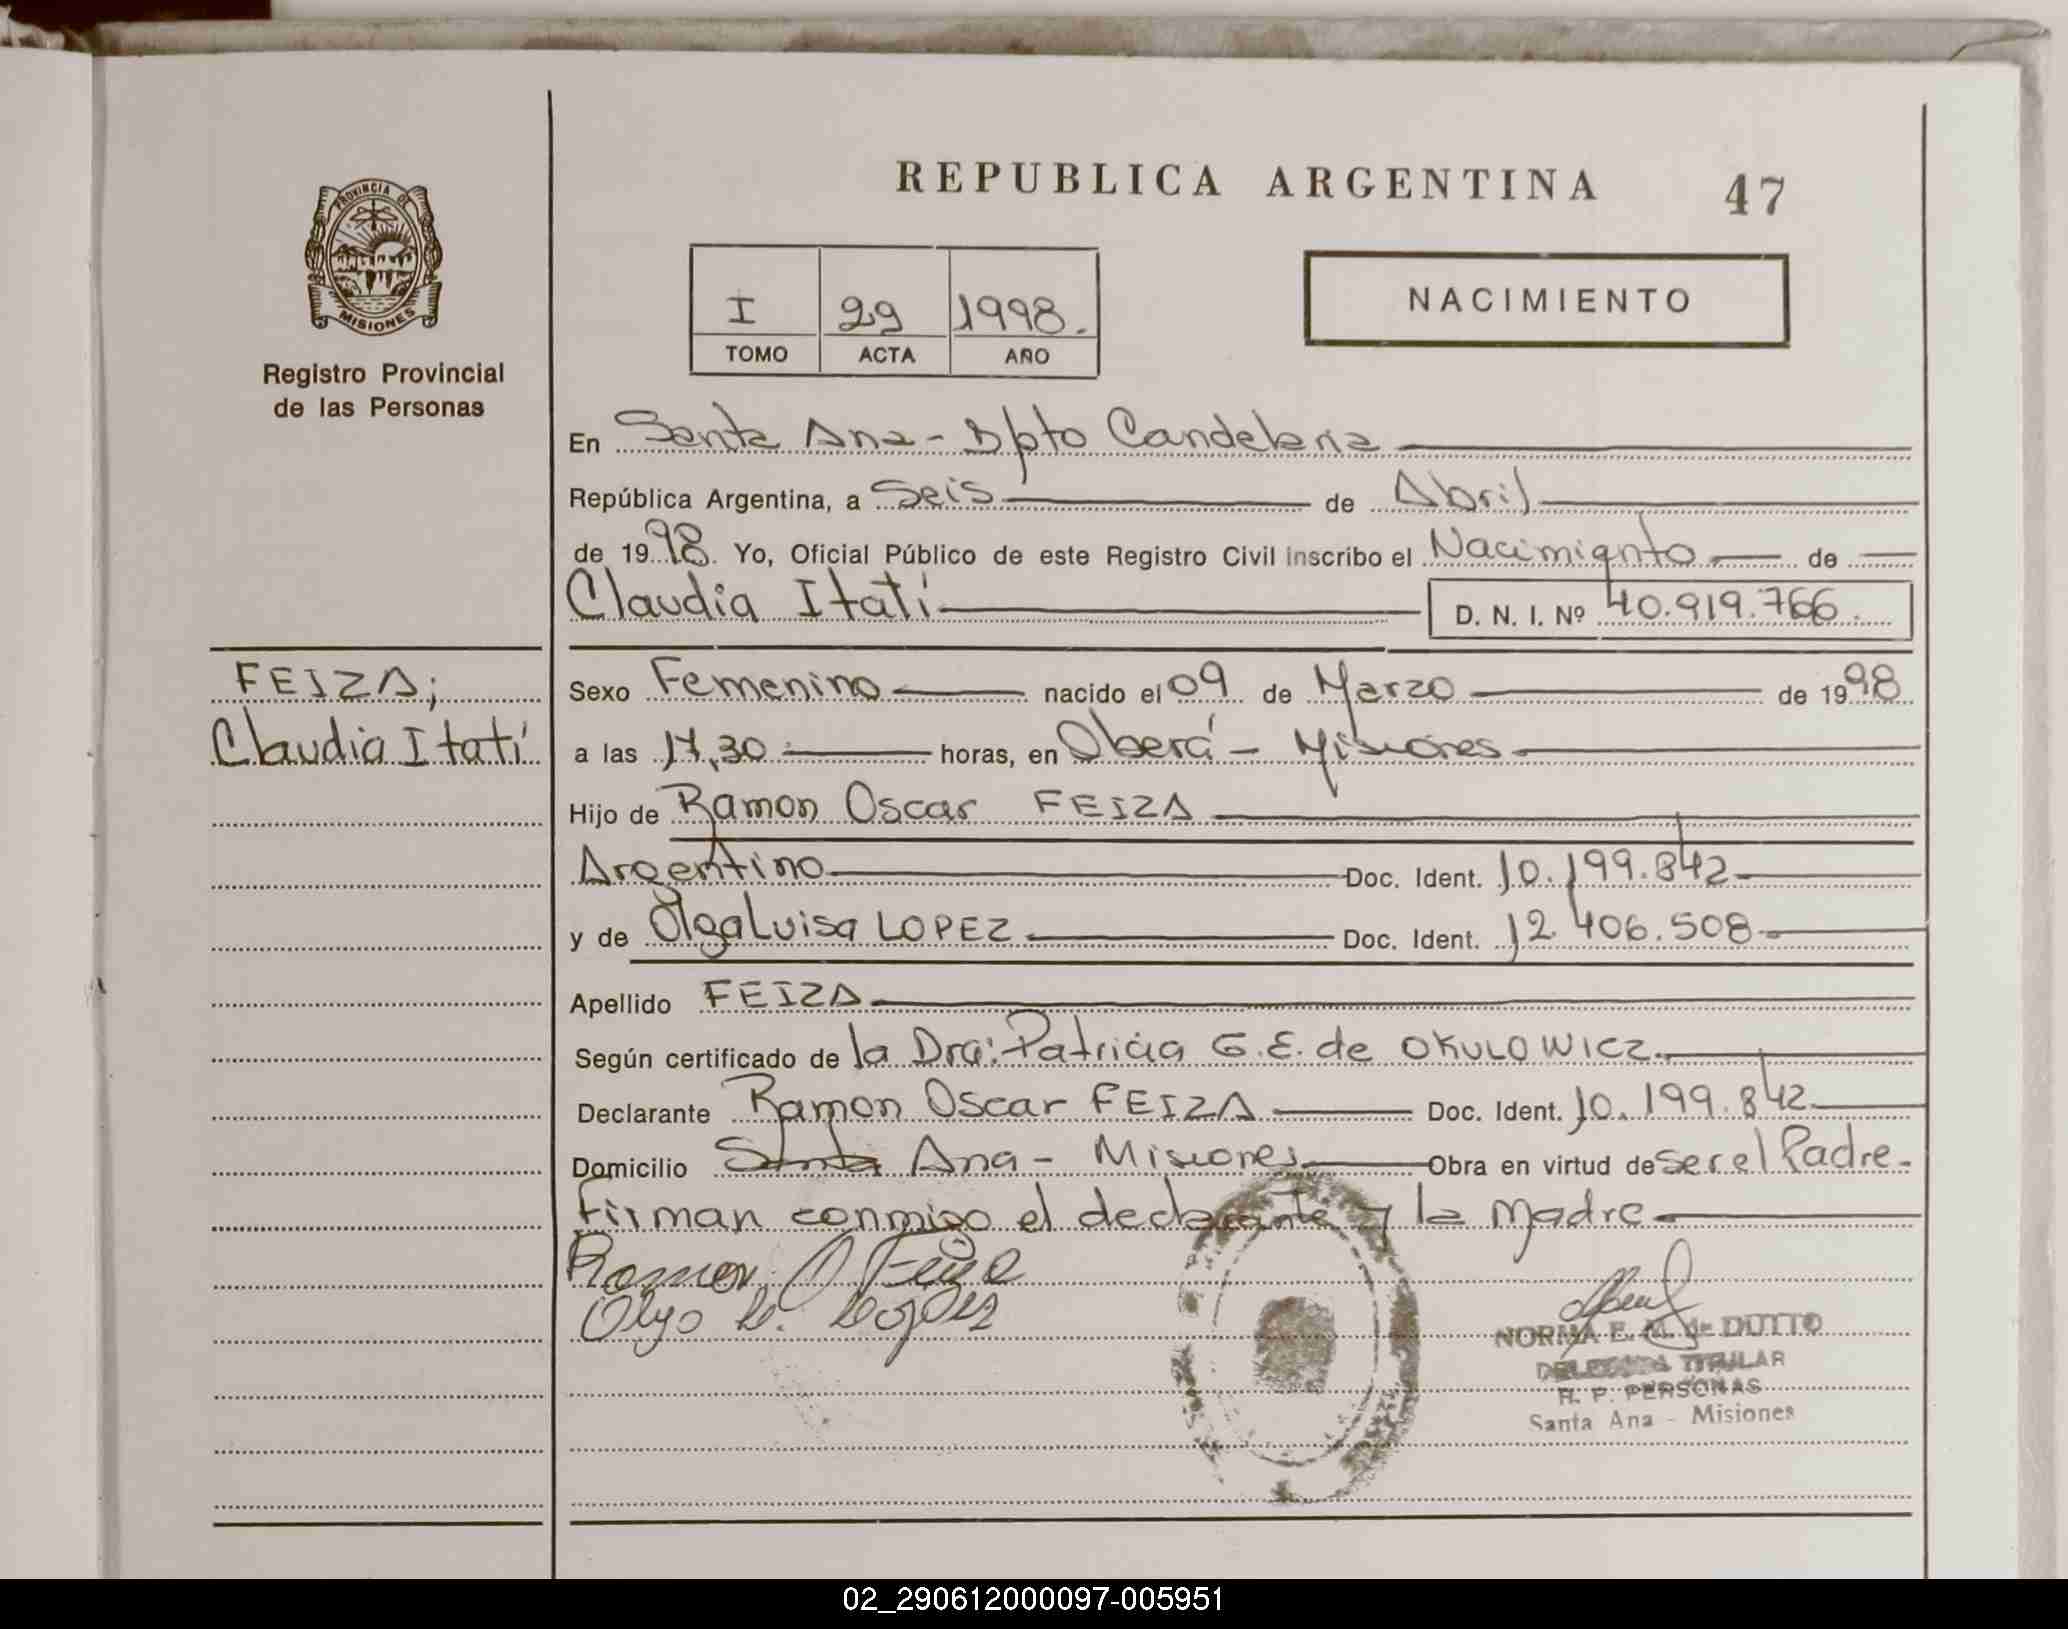 REPUBLICA ARGENTINA 47
PROVINCIA DE
MISIONES
Registro Provincial
de las Personas
NACIMIENTO
I 29 1998.
TOMO ACTA AÑO
En Santa Ana - Dpto Candelaria
República Argentina, a Seis de Abril
de 1998. Yo, Oficial Público de este Registro Civil inscribo el Nacimiento de
Claudia Itatí D. N. I. Nº 40.919.766.
FEIZA;
Claudia Itatí
Sexo Femenino nacido el 09 de Marzo de 1998
a las 17,30 horas, en Oberá - Misiones
Hijo de Ramon Oscar FEIZA
Argentino Doc. Ident. 10.199.842
y de Olga Luisa LOPEZ Doc. Ident. 12.406.508
Apellido FEIZA
Según certificado de la Dra: Patricia G.E. de OKULOWICZ
Declarante Ramon Oscar FEIZA Doc. Ident. 10.199.842
Domicilio Santa Ana - Misiones Obra en virtud de ser el Padre.
Firman conmigo el declarante y la Madre
Ramon O Feiza
Olga L. Lopez
NORMA E. M. de DUTTO
DELEGADA TITULAR
R. P. PERSONAS
Santa Ana - Misiones
02_290612000097-005951